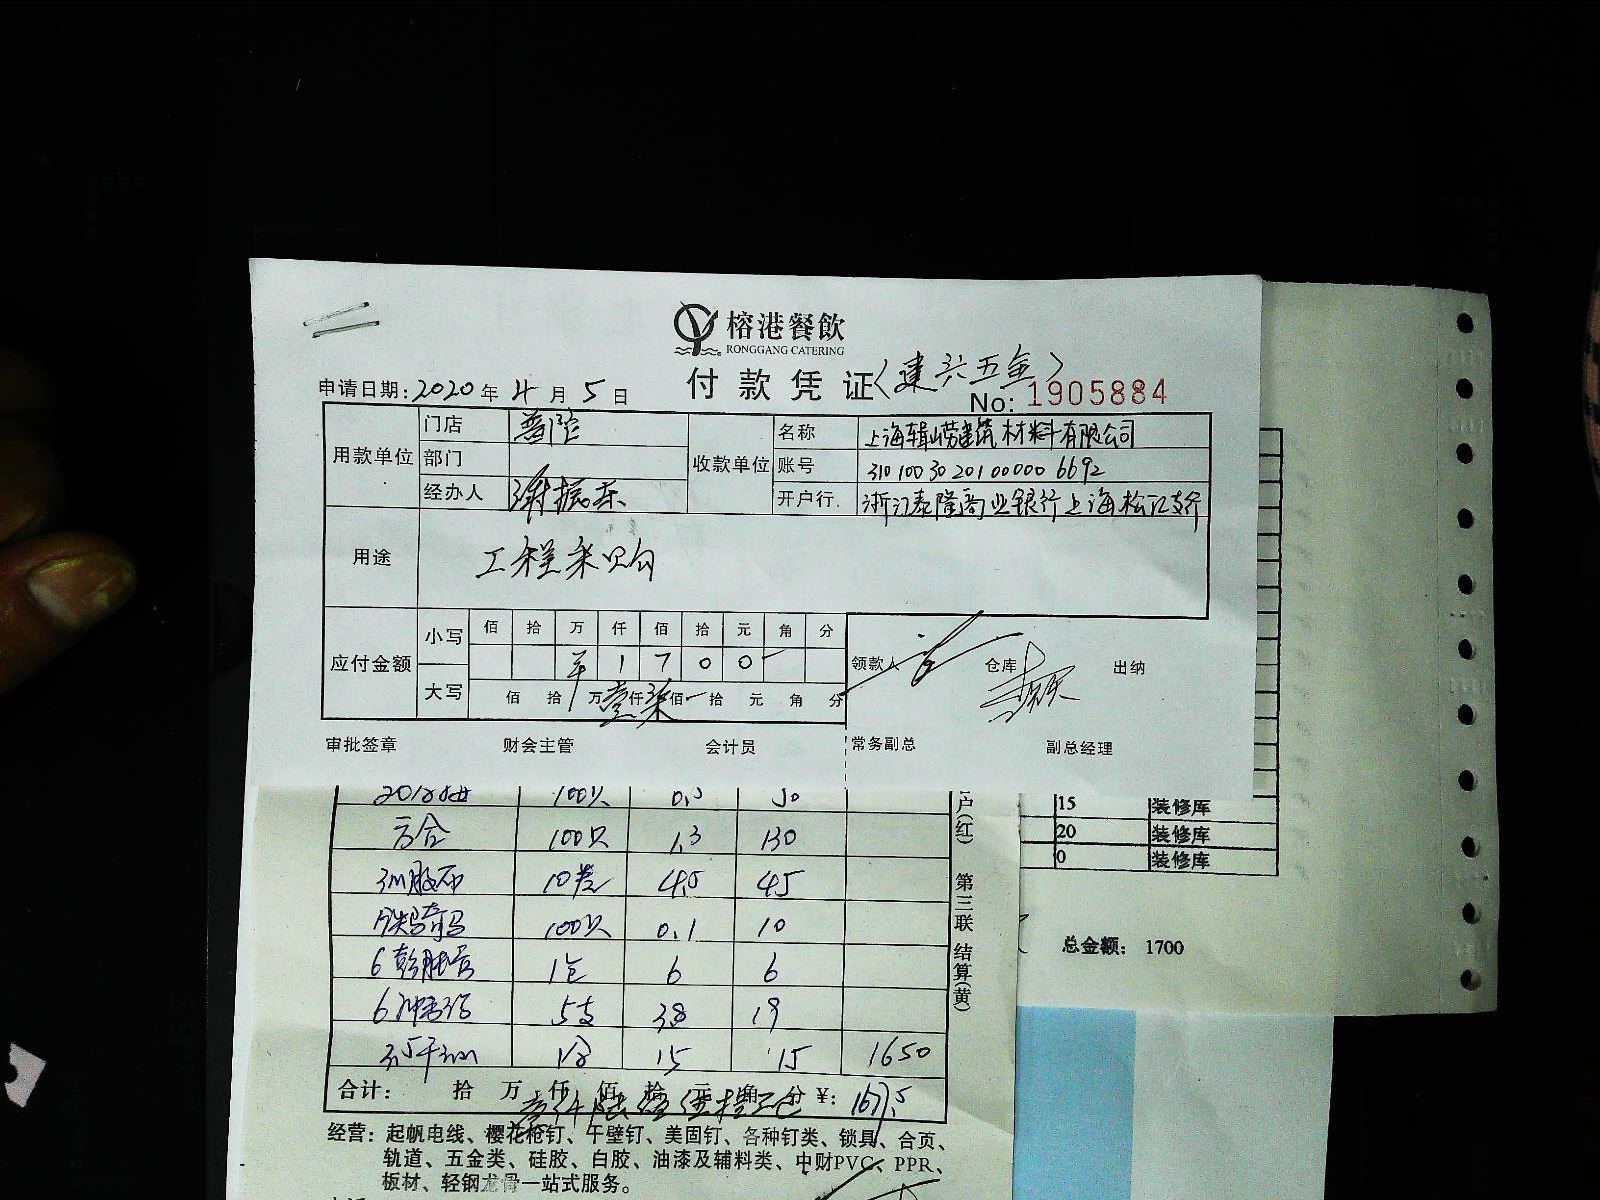 榕港餐飲
RONGGANG CATERING
付款凭证〈建兴五金〉
申请日期:2020年4月5日
No: 1905884
用款单位 门店 普陀
部门
经办人 谢振东
收款单位 名称 上海辑崂建筑材料有限公司
账号 310 100 30 20100000 6692
开户行 浙江泰隆商业银行上海松江支行
用途 工程采购
应付金额 小写 佰 拾 万 仟 佰 拾 元 角 分
¥ 1 7 0 0 -
大写 佰 拾 万壹仟柒佰 拾 元 角 分
领款人 仓库 出纳
审批签章 财会主管 会计员 常务副总 副总经理
100只 0.5 50
方合 100只 1.3 130
3m胶布 10卷 4.5 45
100只 0.1 10
6 1包 6 6
6 5支 3.8 19
1合 15 15 1650
合计: 拾 万 仟 佰 拾 元 角 分 ¥: 1677.5
户(红) 第三联 结算(黄)
经营: 起帆电线、樱花枪钉、午壁钉、美固钉、各种钉类、锁具、合页、
轨道、五金类、硅胶、白胶、油漆及辅料类、中财PVC、PPR、
板材、轻钢龙骨一站式服务。
15 装修库
20 装修库
0 装修库
总金额: 1700